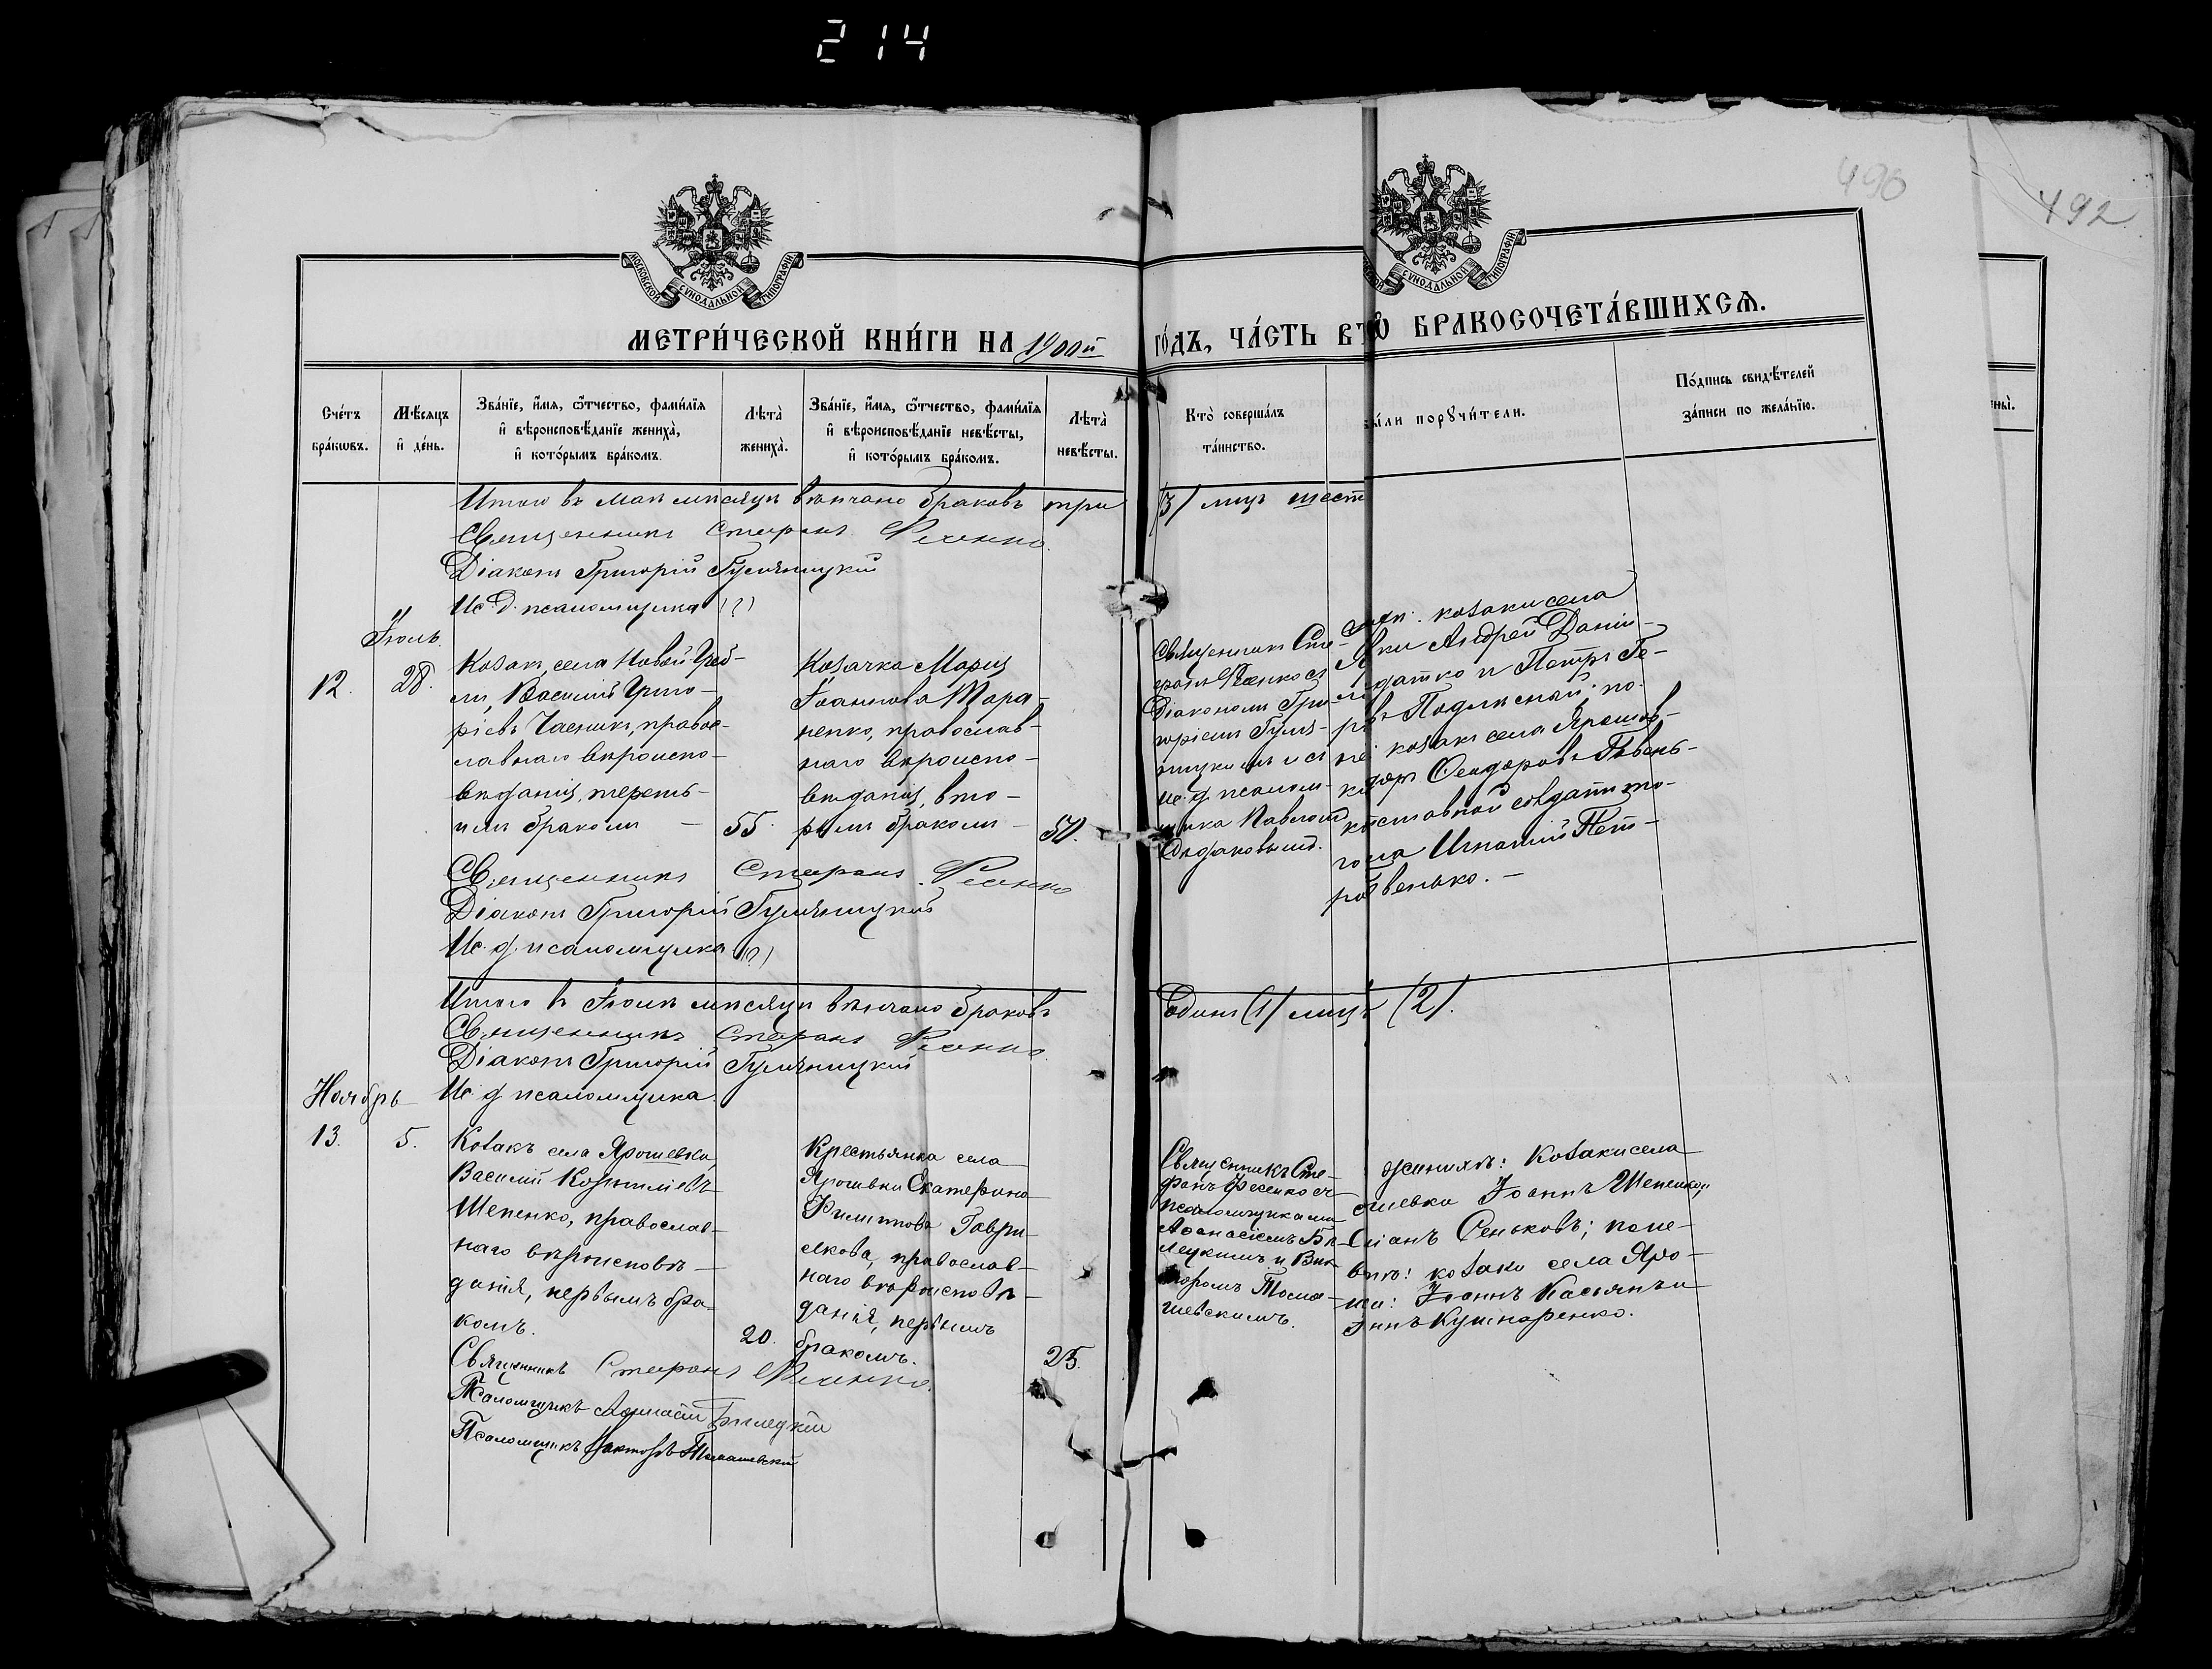 214
490
492
МОСКОВСКОЙ СѴНОДАЛЬНОЙ ТИПОГРАФІИ
МОСКОВСКОЙ СѴНОДАЛЬНОЙ ТИПОГРАФІИ
МЕТРИ́ЧЕСКОЙ КНИ́ГИ НА 1900й
ГО́ДЪ, ЧА́СТЬ ВТО БРАКОСОЧЕТА́ВШИХСѦ.
Сче́тъ
бра́кѡвъ.
Мѣ́сяцъ
и҆ де́нь.
Зва́нїе, и҆́мя, ѻ҆́тчество, фами́лїя
и҆ вѣроисповѣ́данїе жениха̀,
и҆ кото́рымъ бра́комъ.
Лѣта̀
жениха̀.
Зва́нїе, и҆́мя, ѻ҆́тчество, фами́лїя
и҆ вѣроисповѣ́данїе невѣ́сты,
и҆ кото́рымъ бра́комъ.
Лѣта̀
невѣ́сты.
Кто̀ соверша́лъ
та́инство.
бы́ли порꙋчи́тели.
По́дпись свидѣ́телей
за́писи по жела́нїю.
ены̀.
Итого въ маѣ мѣсяцѣ вѣнчано браковъ три
(3) лицъ шест
Священникъ Стефанъ Фесенко.
Діаконъ Григорій Гуляницкій
Ис. д. псаломщика (?)
Іюль
12.
28.
Козакъ села Новой Греб-
ли, Василій Григо-
ріевъ Часникъ, правос-
лавнаго вѣроиспо-
вѣданія, треть-
имъ бракомъ —
55.
Козачка Марія
Іоаннова Тара-
ненко, православ-
наго вѣроиспо-
вѣданія, вто-
рымъ бракомъ —
50.
Священникъ Сте-
фанъ Фесенко съ
Діакономъ Гри-
горіемъ Гуля-
ницкимъ и съ
ис. д. псалом-
щика Павломъ
козаки села
вки Андрей Даніи-
датко и Петръ Ге-
по
козакъ села Ярошов-
Феодоровъ
Игнатій Пет-
венько. —
Священникъ Стефанъ Фесенко
Діаконъ Григорій Гуляницкій
Ис. д. псаломщика (?)
Итого въ Іюлѣ мѣсяцѣ вѣнчано браковъ
Одинъ (1) лицъ (2).
Священникъ Стефанъ Фесенко.
Діаконъ Григорій Гуляницкій
Ис. д. псаломщика.
Ноябрь
13.
5.
Козакъ села Ярошевки,
Василій Корниліевъ
Шепенко, православ-
наго вѣроисповѣ-
данія, первымъ бра-
комъ.
20.
Крестьянка села
Ярошевки Екатерина
Филиппова Гаври-
лкова, православ-
наго вѣроисповѣ-
данія, первымъ
бракомъ.
25.
Священникъ Сте-
фанъ Фесенко съ
псаломщиками
Афанасіемъ Бѣ-
лецкимъ и Вик-
торомъ Тома-
шевскимъ.
женихѣ: козаки села
шевки Іоаннъ Шепенко,
Сеньковъ; поне-
вѣстѣ: козаки села Яро-
Іоаннъ Касьянъ и
аннъ Кушнаренко.
Священникъ Стефанъ Фесенко.
Псаломщикъ Афанасій Бѣлецкій
Псаломщикъ Викторъ Томашевскій